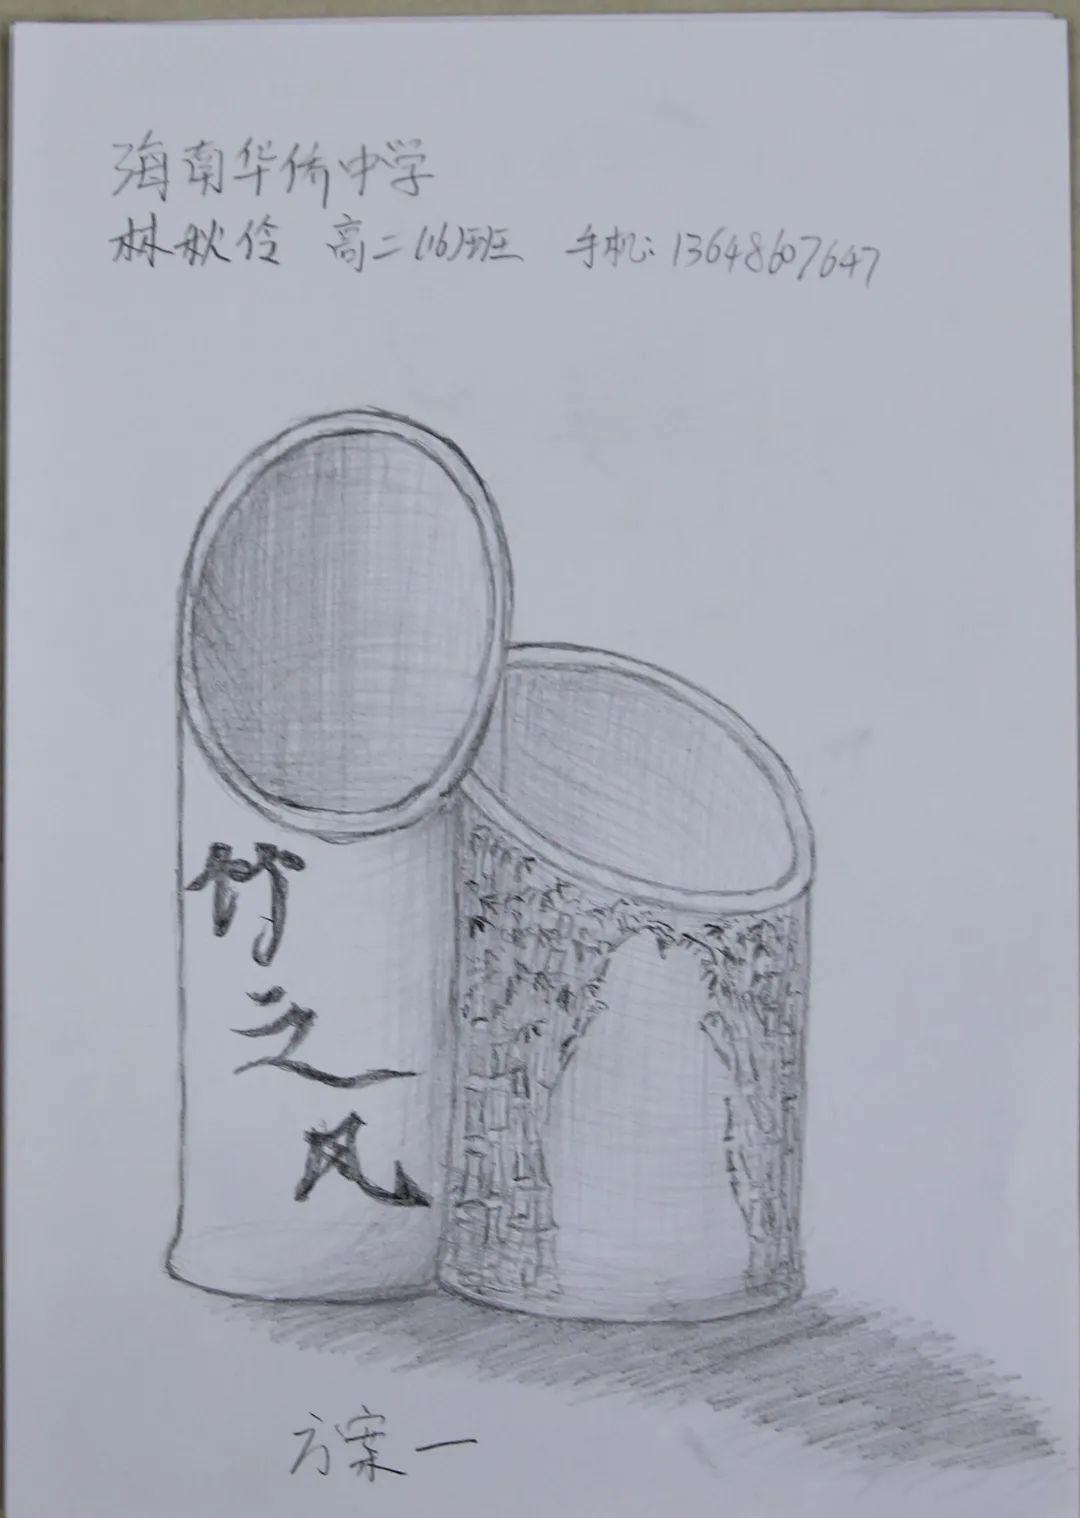 海南华侨中学
林秋伶 高二(16)班 手机:13648607647
竹之风
方案一